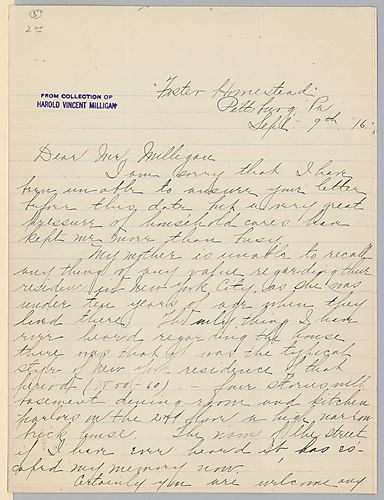 5
2.00
FROM COLLECTION OF
HAROLD VINCENT MILLIGAN
"Foster Homestead"
Pittsburg Pa
Sept. 9th '16.
Dear Mr. Milligan
I am sorry that I have
been unable to answer your letter
before this date but a very great
pressure of household cares have
kept me more than busy.
My mother is unable to recall
any thing of any value regarding their
residence in New York City, as she was
under ten years of age when they
lived there. The only thing I have
ever heard regarding the house
there was that it was the typical
style of New York residence of that
period (1850-60) - four stories with
basement dining-room and kitchen
parlors on the 2nd floor a high narrow
brick house. The name of the street
if I have ever heard it has es-
caped my memory now.
Certainly you are welcome any